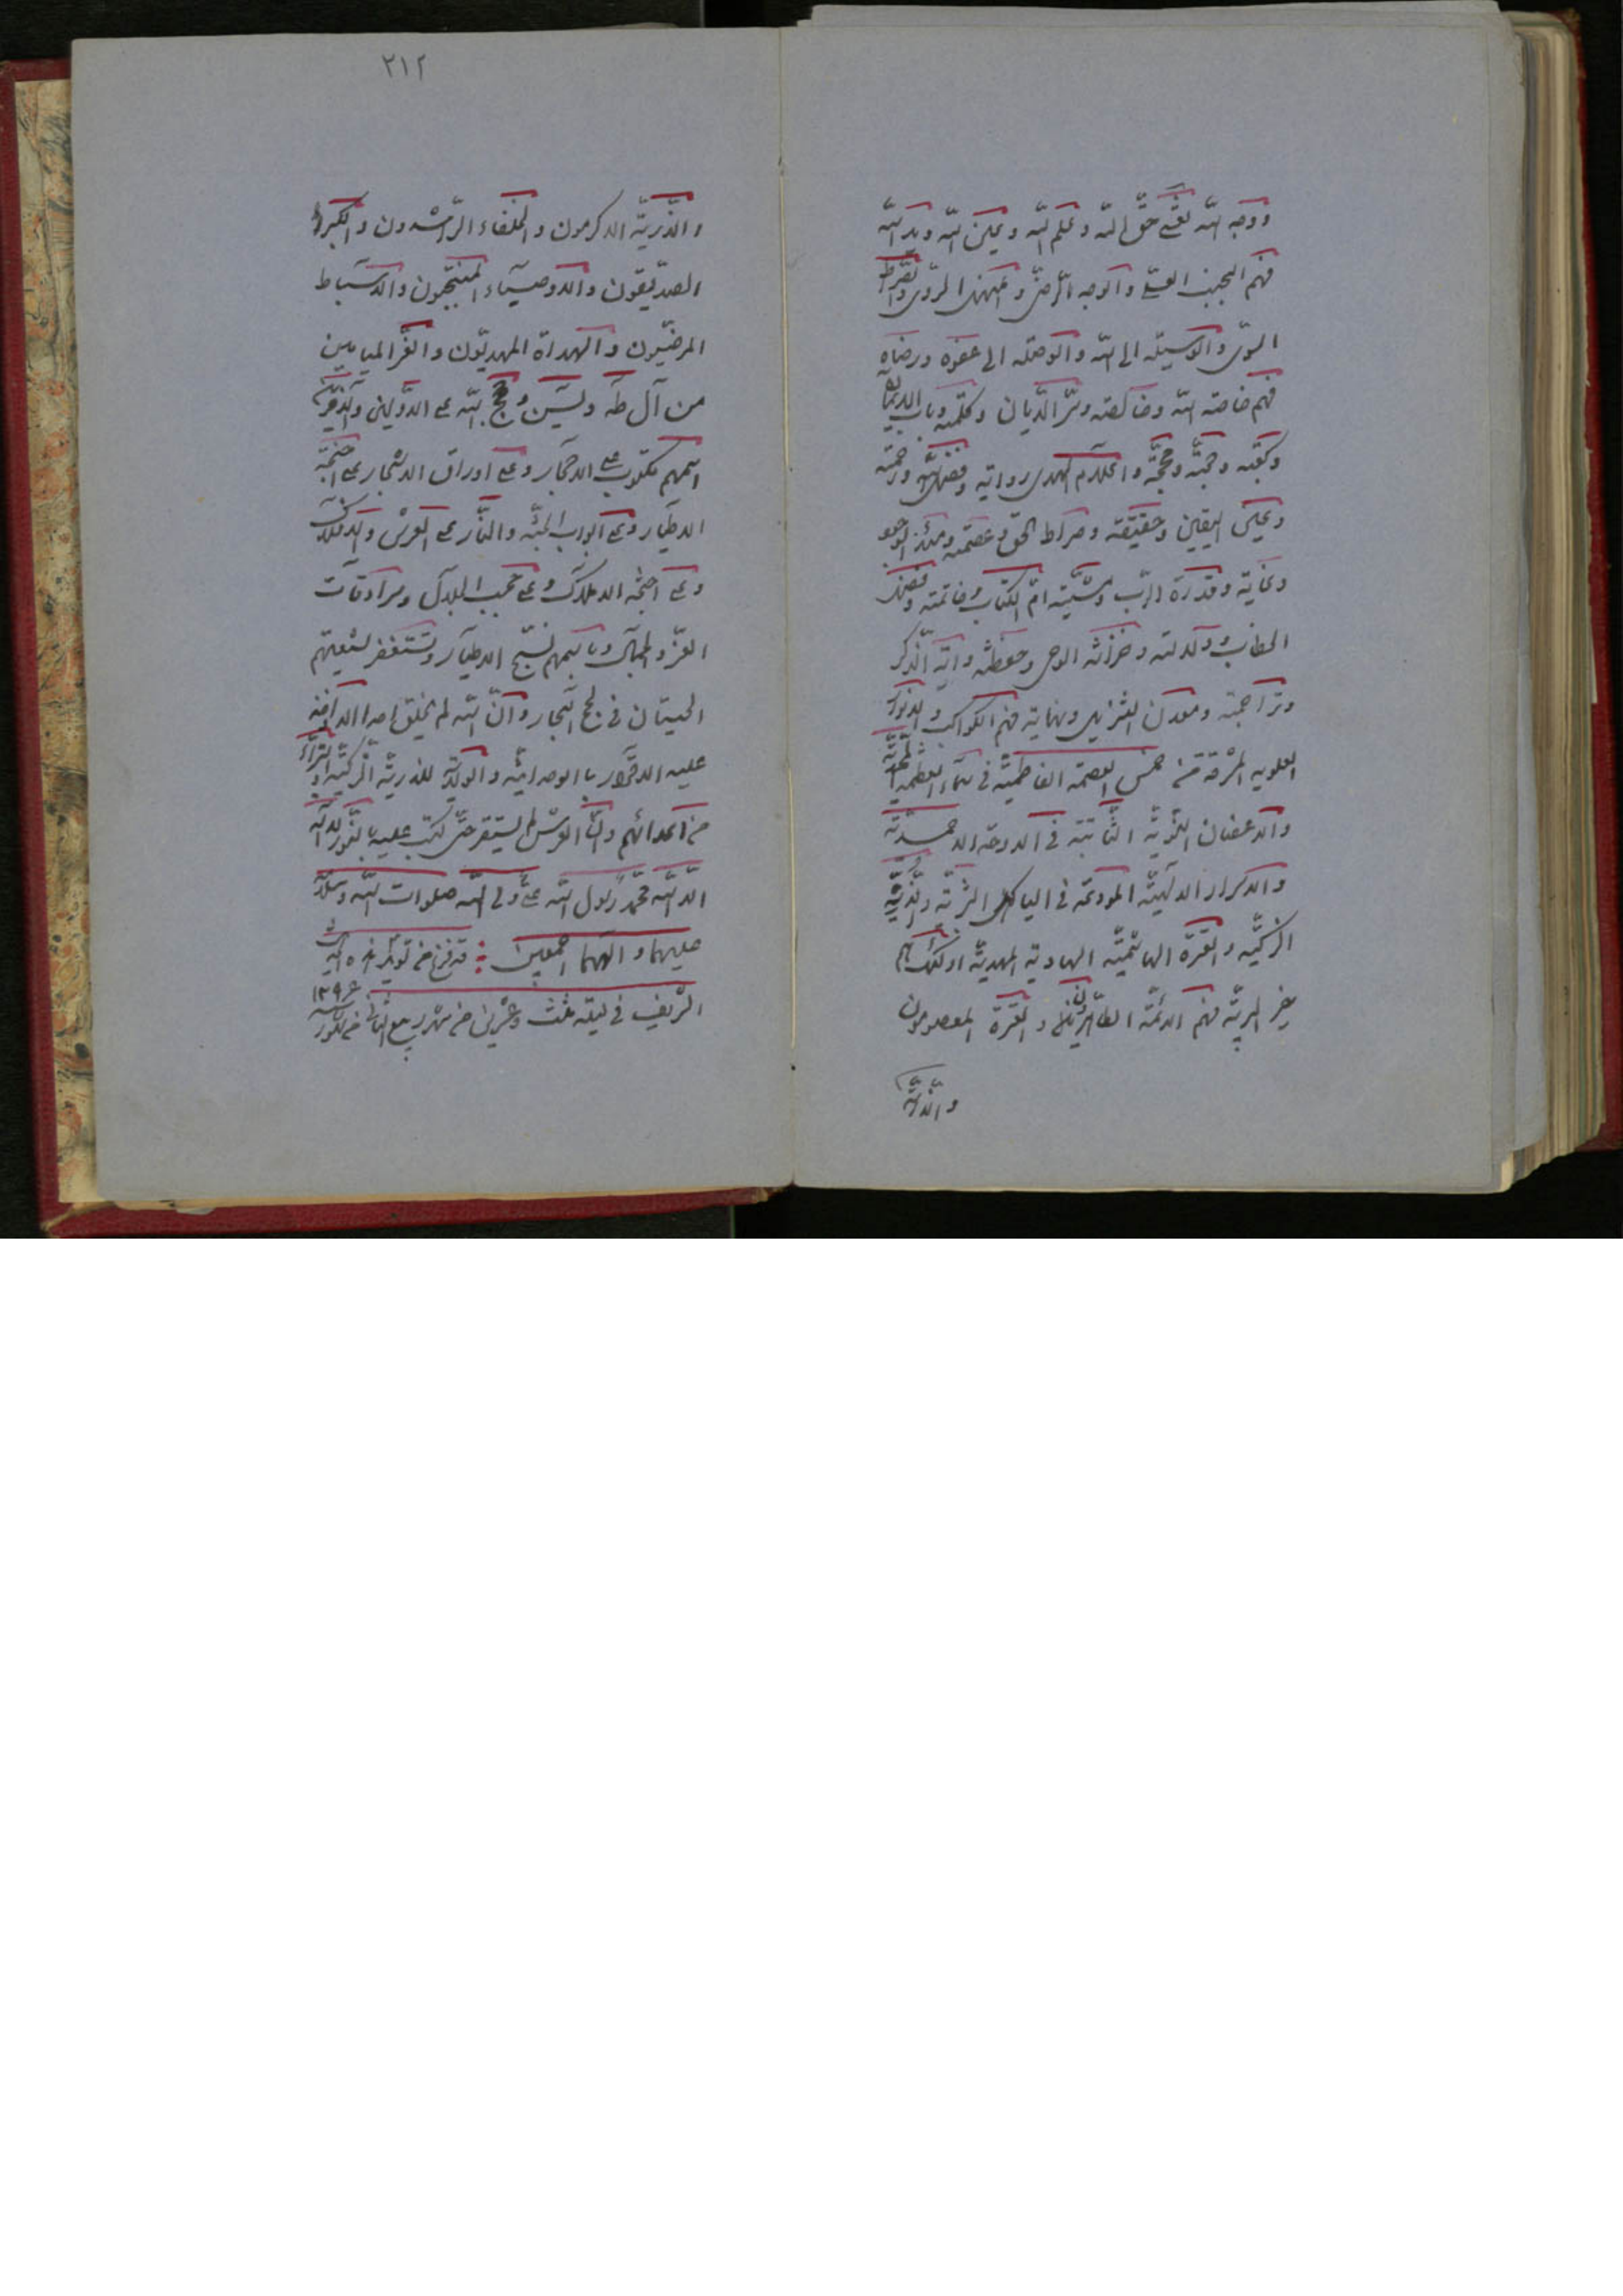 ووجه الله نعنى حق الله وعلم الله وعين الله ويد الله
فهم الجنب العلى والوجه الرضى والمنهل الروى والصراط
السوى والوسيلة الى الله والوصلة الى عفوه ورضاه
فهم خاصة الله وخالصته وسر الديان وكلمته وباب الايمان
وكعبته وحجته ومحجته واعلام الهدى وراياته وفضل الله ورحمته
وعين اليقين وحقيقته وصراط الحق وعصمته ومبدء الوجود
وغايته وقدرة الرب ومشيته ام الكتاب وخاتمته وفصل
الخطاب ودلالته وخزنة الوحى وحفظته واية الذكر
وتراجمته ومعدن التنزيل ونهايته فهم الكواكب والانوار
العلوية المشرقة من شمس العصمة الفاطمية فى سماء العظمة المحمدية
والاغصان النبوية النابتة فى الدوحة الاحمدية
والاسرار الالهية المودعة فى الهياكل البشرية والذرية
الزكية والعترة الهاشمية الهادية المهدية اولئك هم
خير البرية فهم الائمة الطاهرين والعترة المعصومون
والذرية
٢١٢
والذرية الاكرمون والخلفاء الراشدون والكبراء
الصديقون والاوصياء المنتجبون والاسباط
المرضيون والهداة المهديون والغر الميامين
من آل طه ويسن وحجج الله على الاولين والاخرين
اسمهم مكتوب على الاحجار وعلى اوراق الاشجار وعلى اجنحة
الاطيار وعلى ابواب الجنة والنار على العرش والافلاك
وعلى اجنحة الاملاك وعلى حجب الجلال وسرادقات
العز والجمال وباسمهم تسبح الاطيار وتستغفر لشيعتهم
الحيتان فى لجج البحار وان الله لم يخلق احدا الا اخذ
عليه الاقرار بالوحدانية والولاية للذرية الزكية والبراءة
من اعدائهم وان العرش لم يستقر حتى كتب عليه بالنور لا اله
الا الله محمد رسول الله على ولى الله صلوات الله وسلامه
عليهما و الهما اجمعين قد فرغ من تسويد هذه
الشريف فى ليلة ثلث وعشرين من شهر ربيع الثانى من شهور سنه ١٢٩٤